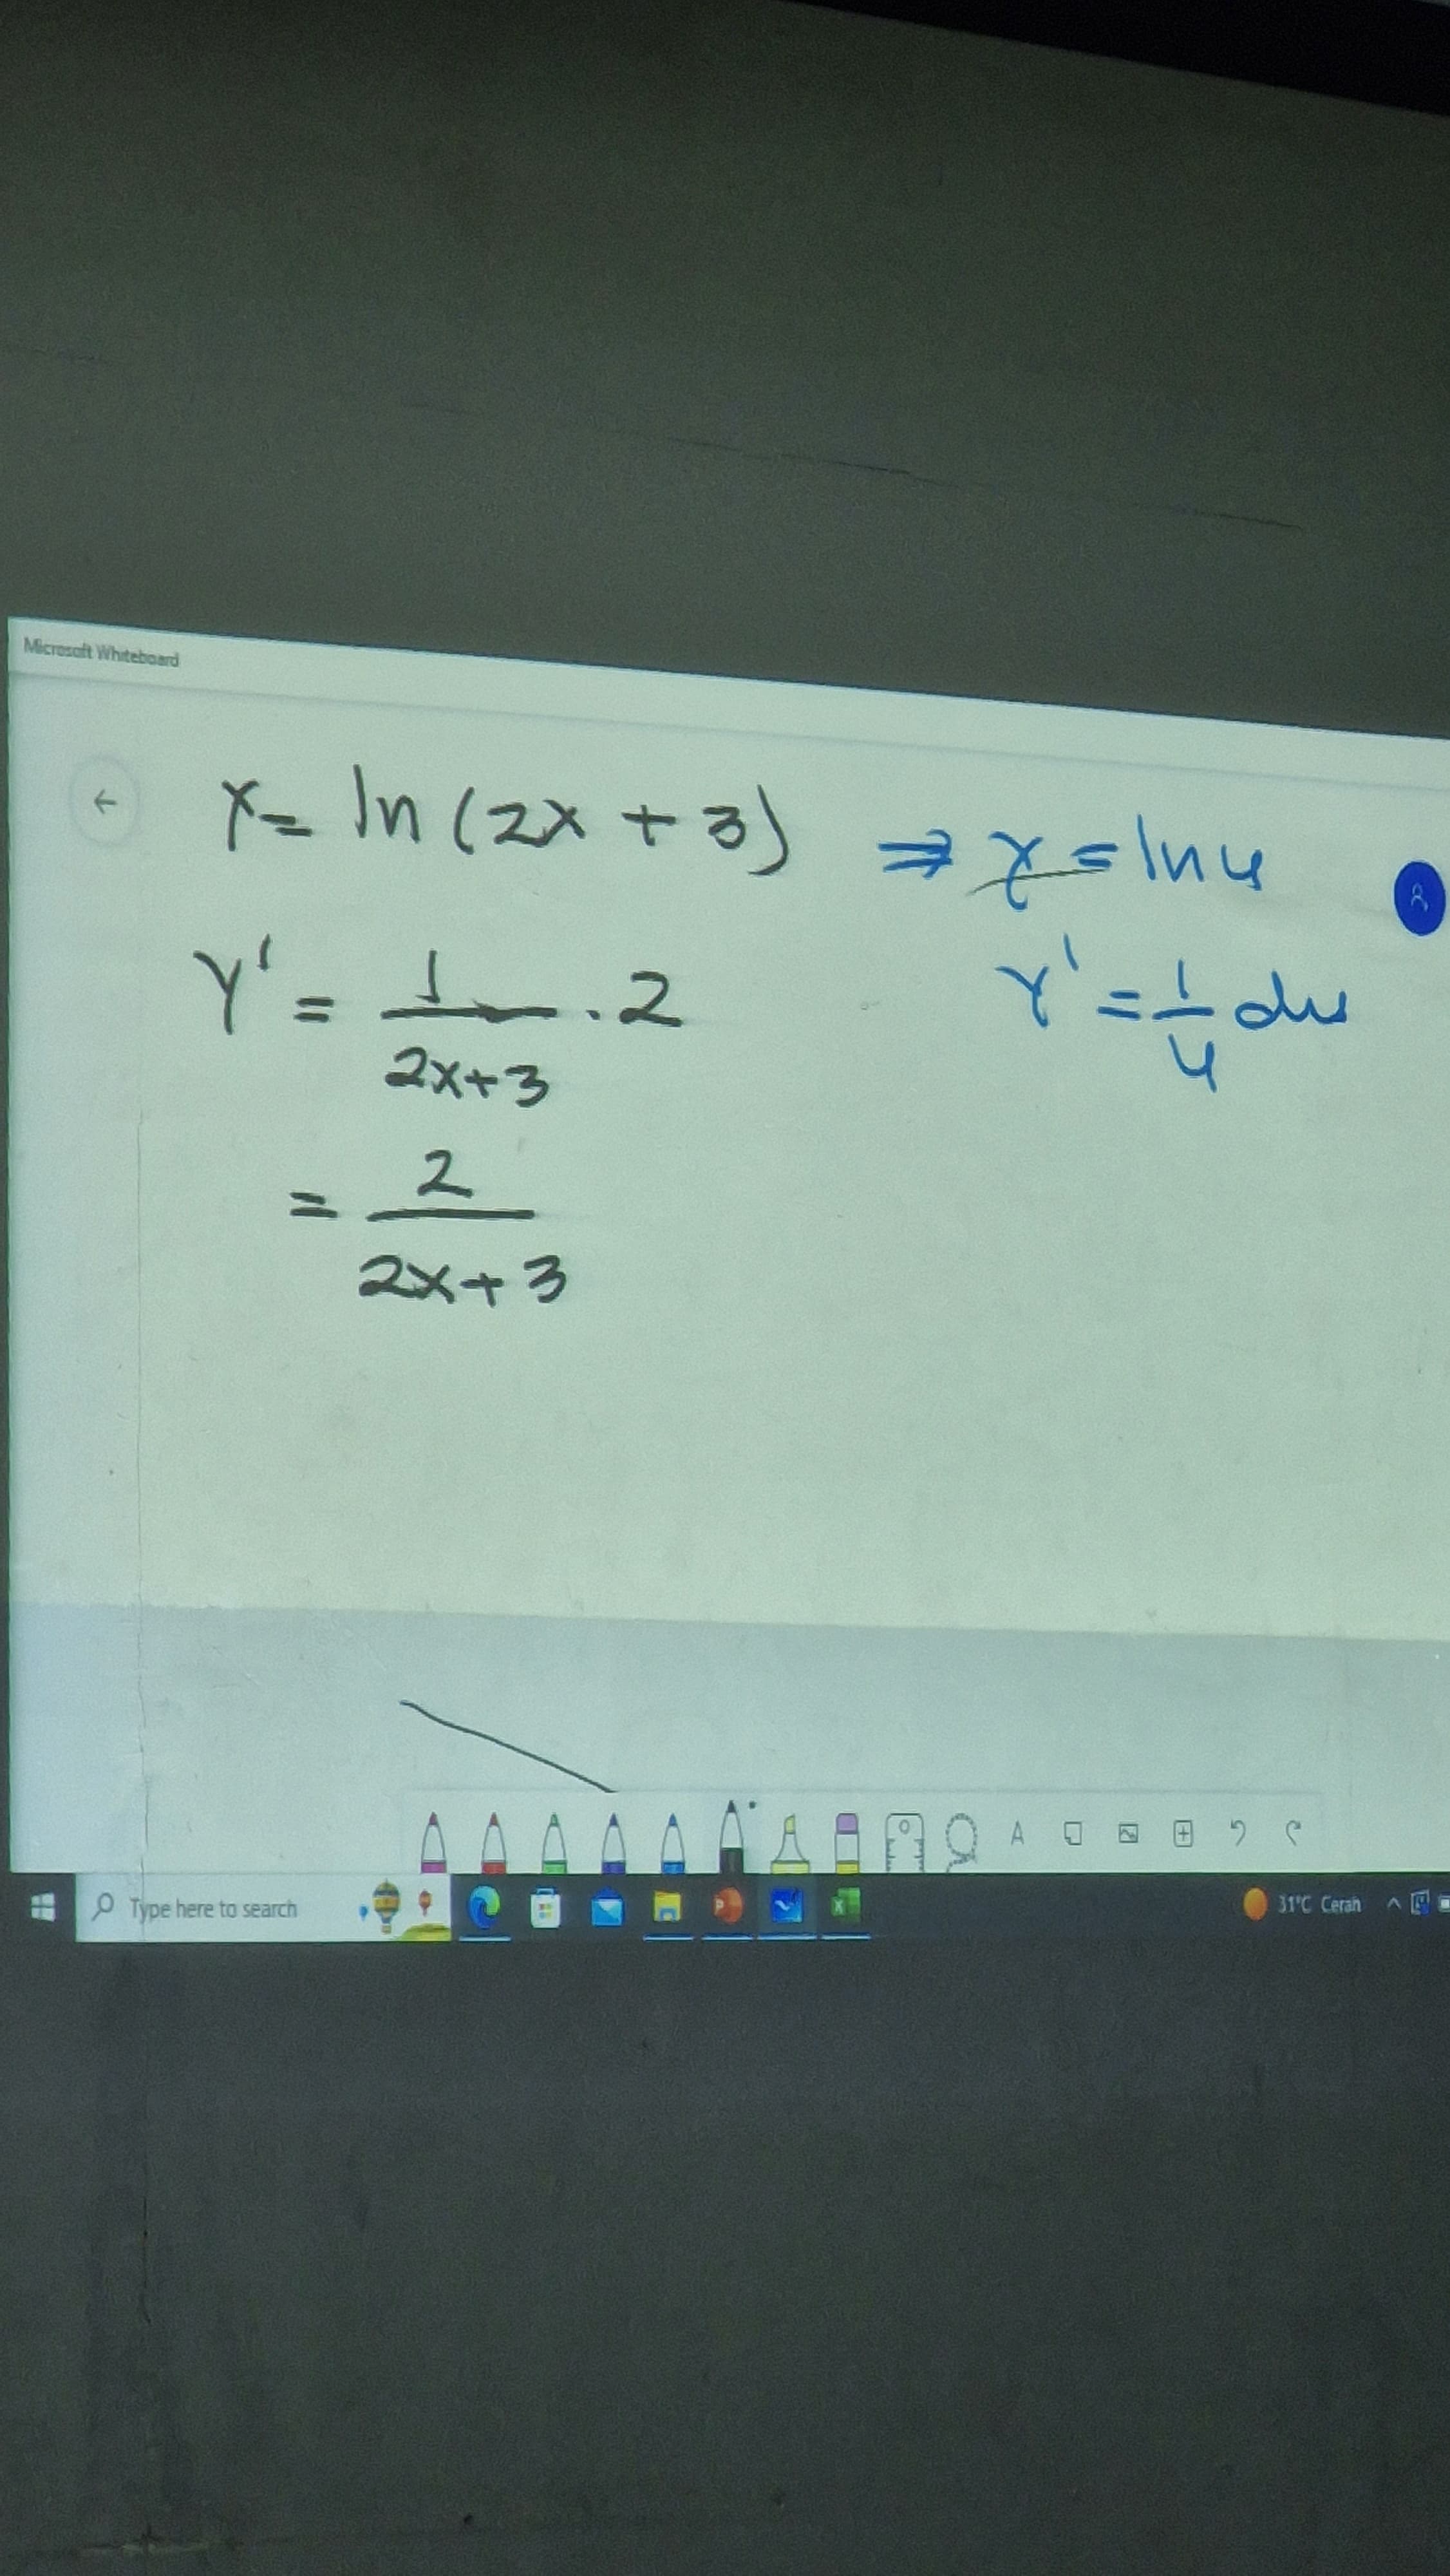 Microsoft Whiteboard
Y= ln (2x + 3) ⇒ Y = ln u
Y' = 1/2x+3 . 2
Y' = 1/u du
= 2/2x+3
Type here to search
31°C Cerah